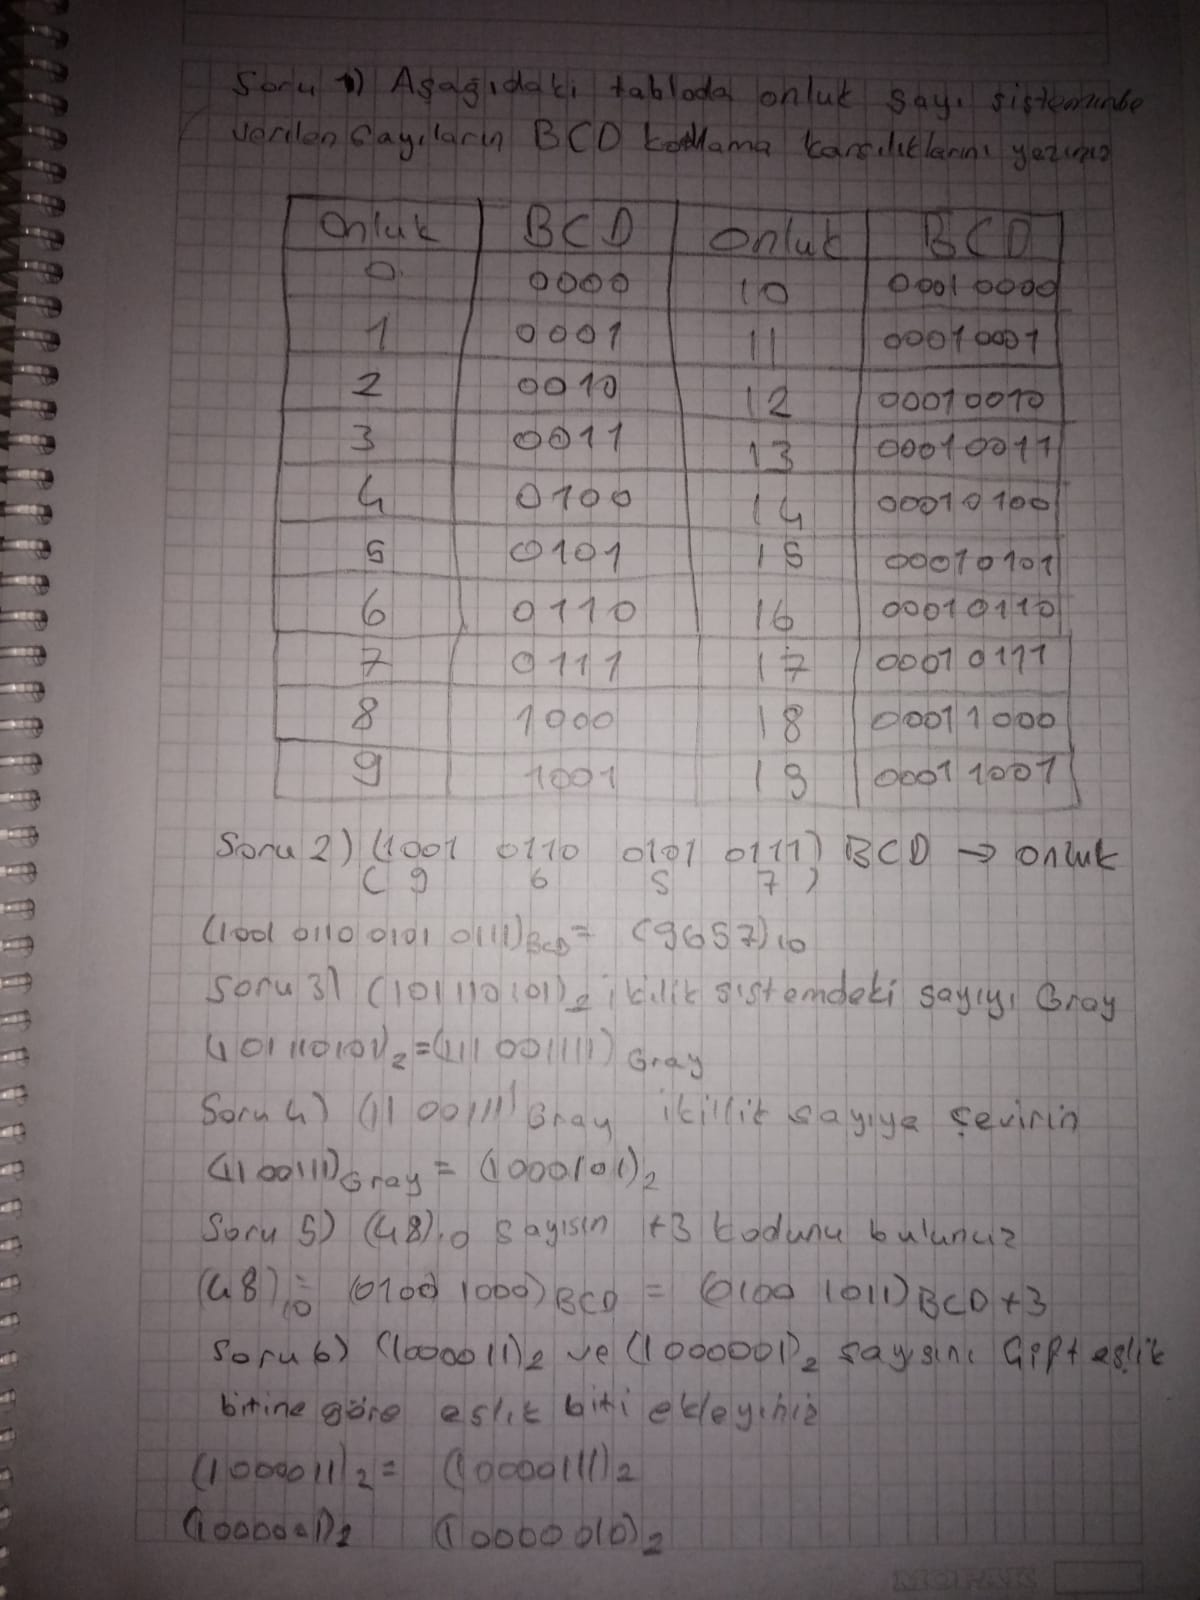 Soru 1) Aşağıdaki tabloda onluk sayı sisteminbe
verilen sayıların BCD kodlama karşılıklarını yazınız
Onluk BCD Onluk BCD
0 0000 10 00010000
1 0001 11 00010001
2 0010 12 00010010
3 0011 13 00010011
4 0100 14 00010100
5 0101 15 00010101
6 0110 16 00010110
7 0111 17 00010111
8 1000 18 00011000
9 1001 19 00011001
Soru 2) (1001 0110 0101 0111) BCD → onluk
( 9 6 5 7 )
(1001 0110 0101 0111)BCD = (9657)10
Soru 3) (101110101)2 ikilik sistemdeki sayıyı Gray
(101110101)2 = (111001111)Gray
Soru 4) (1100111)Gray ikillik sayıya çevirin
(1100111)Gray = (1000101)2
Soru 5) (48)10 sayısın +3 kodunu bulunuz
(48)10 = (0100 1000)BCD = (0100 1011)BCD+3
Soru 6) (1000011)2 ve (1000001)2 sayısını Çift eşlik
bitine göre eşlik biti ekleyiniz
(1000011)2 = (10000111)2
(1000001)2 (10000010)2
MOPAK